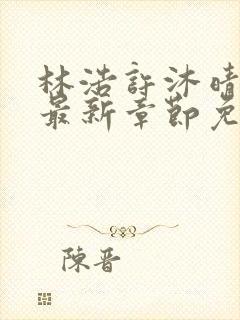 林浩許沐晴
最新章節免
陳晋